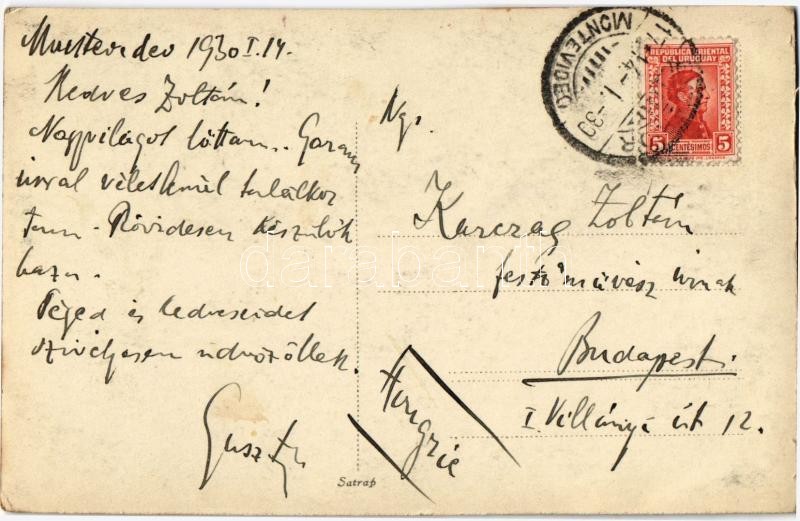 Montevideo 1930 I. 14.
Kedves Zoltán!
Nagyvilágot láttam. Garam
úrral véletlenül találkoz
tam. Rövidesen készülök
haza.
Téged és kedveseidet
szivélyesen üdvözöllek.
Guszti
Satrap
Ngs.
Karczag Zoltán
festőművész úrnak
Budapest.
I Villányi út 12.
Hongrie
MONTEVIDEO
REPUBLICA ORIENTAL
DEL URUGUAY
5 CENTESIMOS 5
darabanth